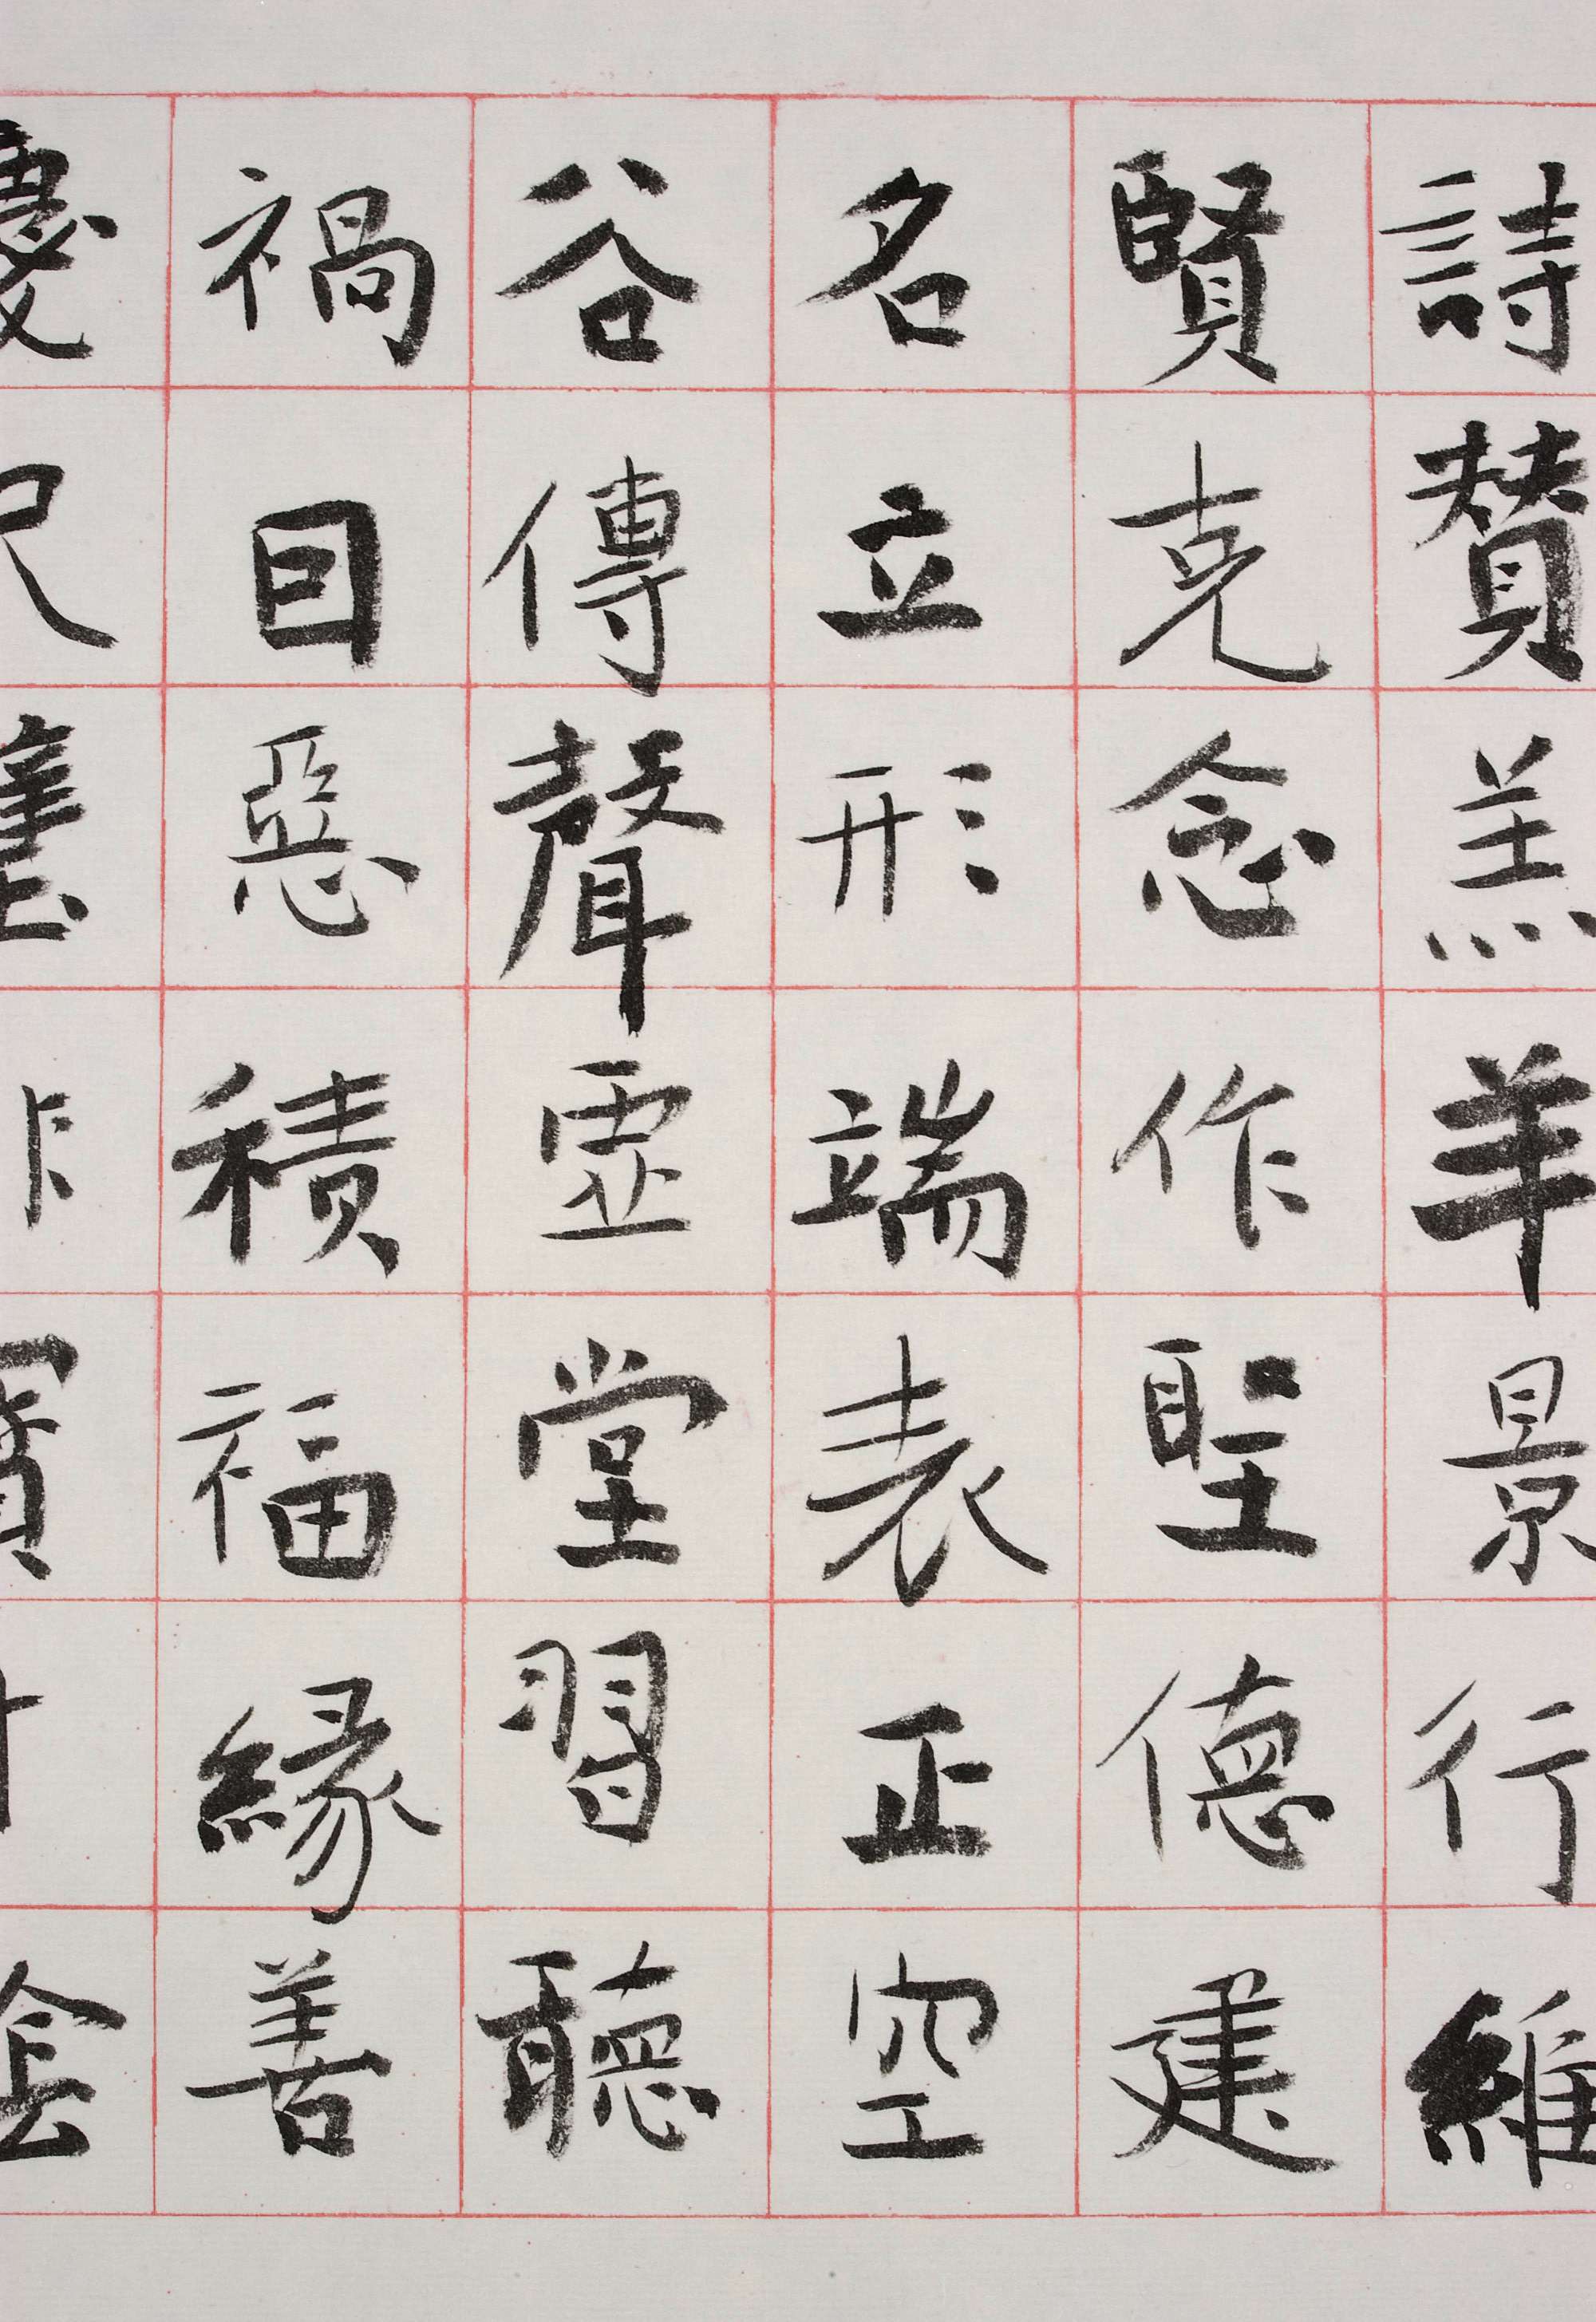 詩賛羔羊景行維
賢克念作聖德建
名立形端表正空
谷傳聲虛堂習聽
禍因惡積福緣善
慶